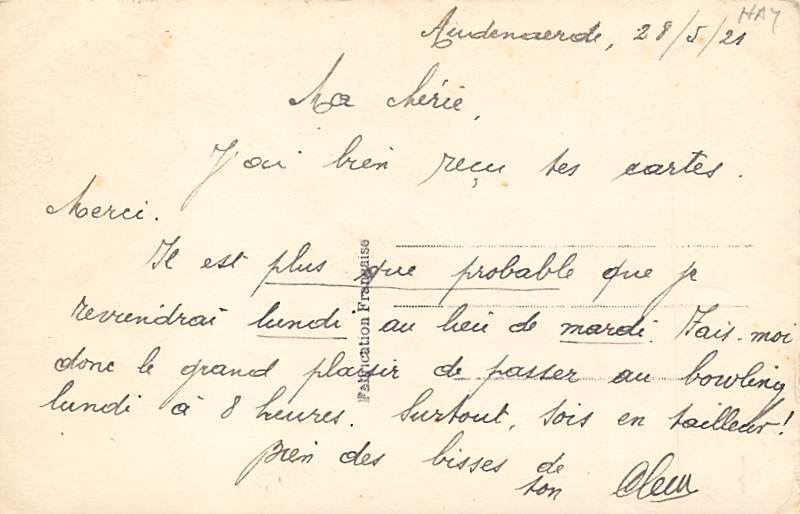 HAY
Audenaerde, 28/5/21
Ma chérie,
J'ai bien reçu tes cartes.
Merci.
Il est plus que probable que je
reviendrai lundi au lieu de mardi. Fais-moi
donc le grand plaisir de passer au bowling
lundi à 8 heures. Surtout, sois en tailleur!
Bien des bisses de
ton
Fabrication Française